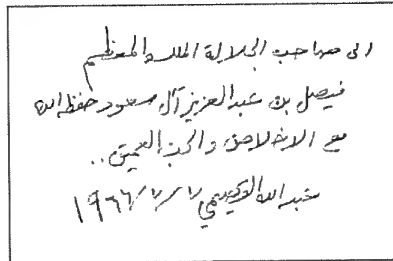 الى صاحب الجلالة الملك المعظم
فيصل بن عبدالعزيز آل سعود حفظه الله
مع الاخلاص والحب العميق..
عبدالله القصيمي ١٩٦٦/٧/٧